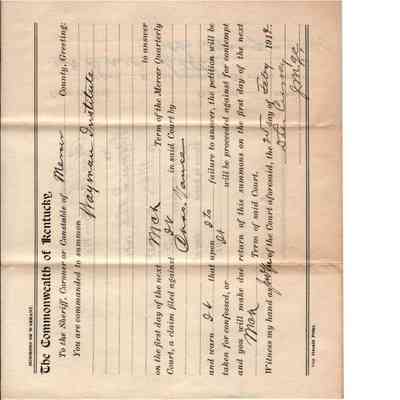 SUMMONS OR WARRANT.
The Commonwealth of Kentucky.
To the Sheriff, Coroner or Constable of Mercer County, Greeting:
You are commanded to summon
Wayman Institute
to answer
on the first day of the next Mch Term of the Mercer Quarterly
Court, a claim filed against It in said Court by
Chas. Vance
and warn It that upon Its failure to answer, the petition will be
taken for confessed, or It will be proceeded against for contempt
and you will make due return of this summons on the first day of the next
Mch Term of said Court.
Witness my hand as Judge of the Court aforesaid, the 25 day of Feby 191